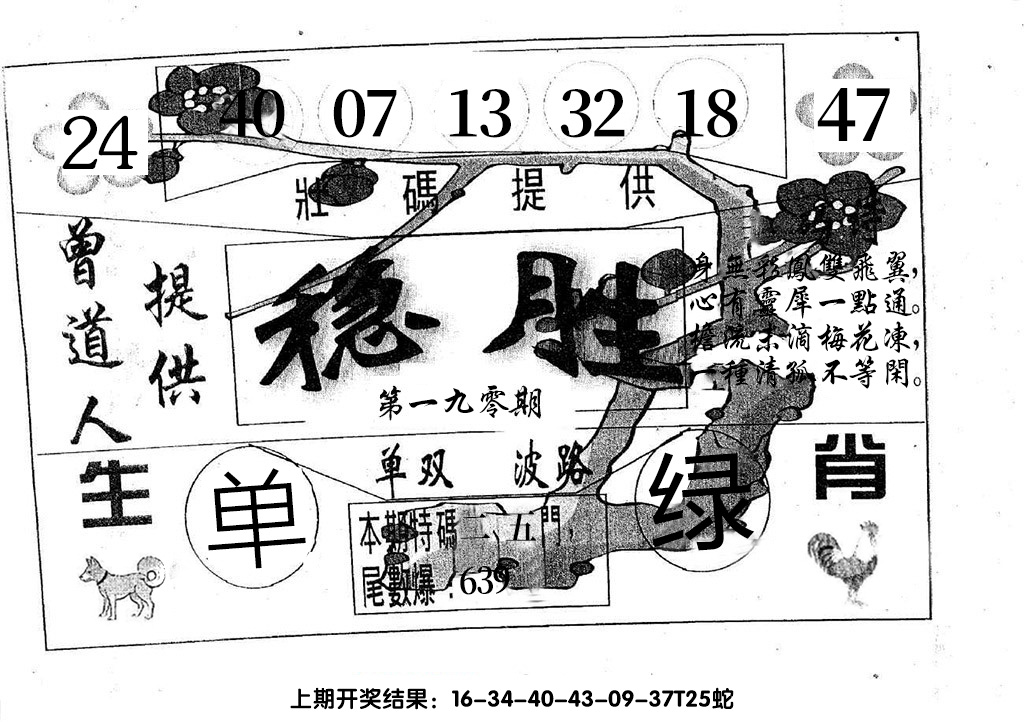 24 40 07 13 32 18 47
壯碼提供
曾道人
提供
稳胜
第一九零期
身無彩鳳雙飛翼，
心有靈犀一點通。
擔流未滴梅花凍，
一種清孤不等閑。
生肖
单双 波路
单 绿
本期特碼二、五門，
尾數爆：639
上期开奖结果：16-34-40-43-09-37T25蛇